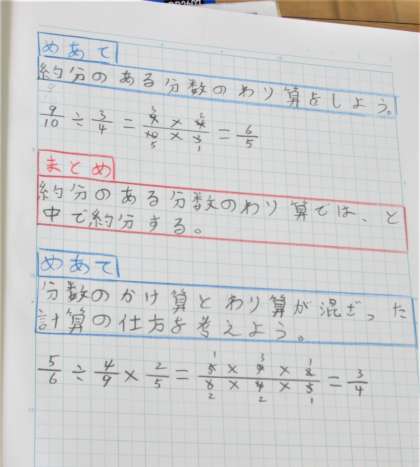 めあて
約分のある分数のわり算をしよう。
9/10 ÷ 3/4 = 9×4/10×3 = 6/5
まとめ
約分のある分数のわり算では、と
中で約分する。
めあて
分数のかけ算とわり算が混ざった
計算の仕方を考えよう。
5/6 ÷ 4/9 × 2/5 = 5×9×2/6×4×5 = 3/4